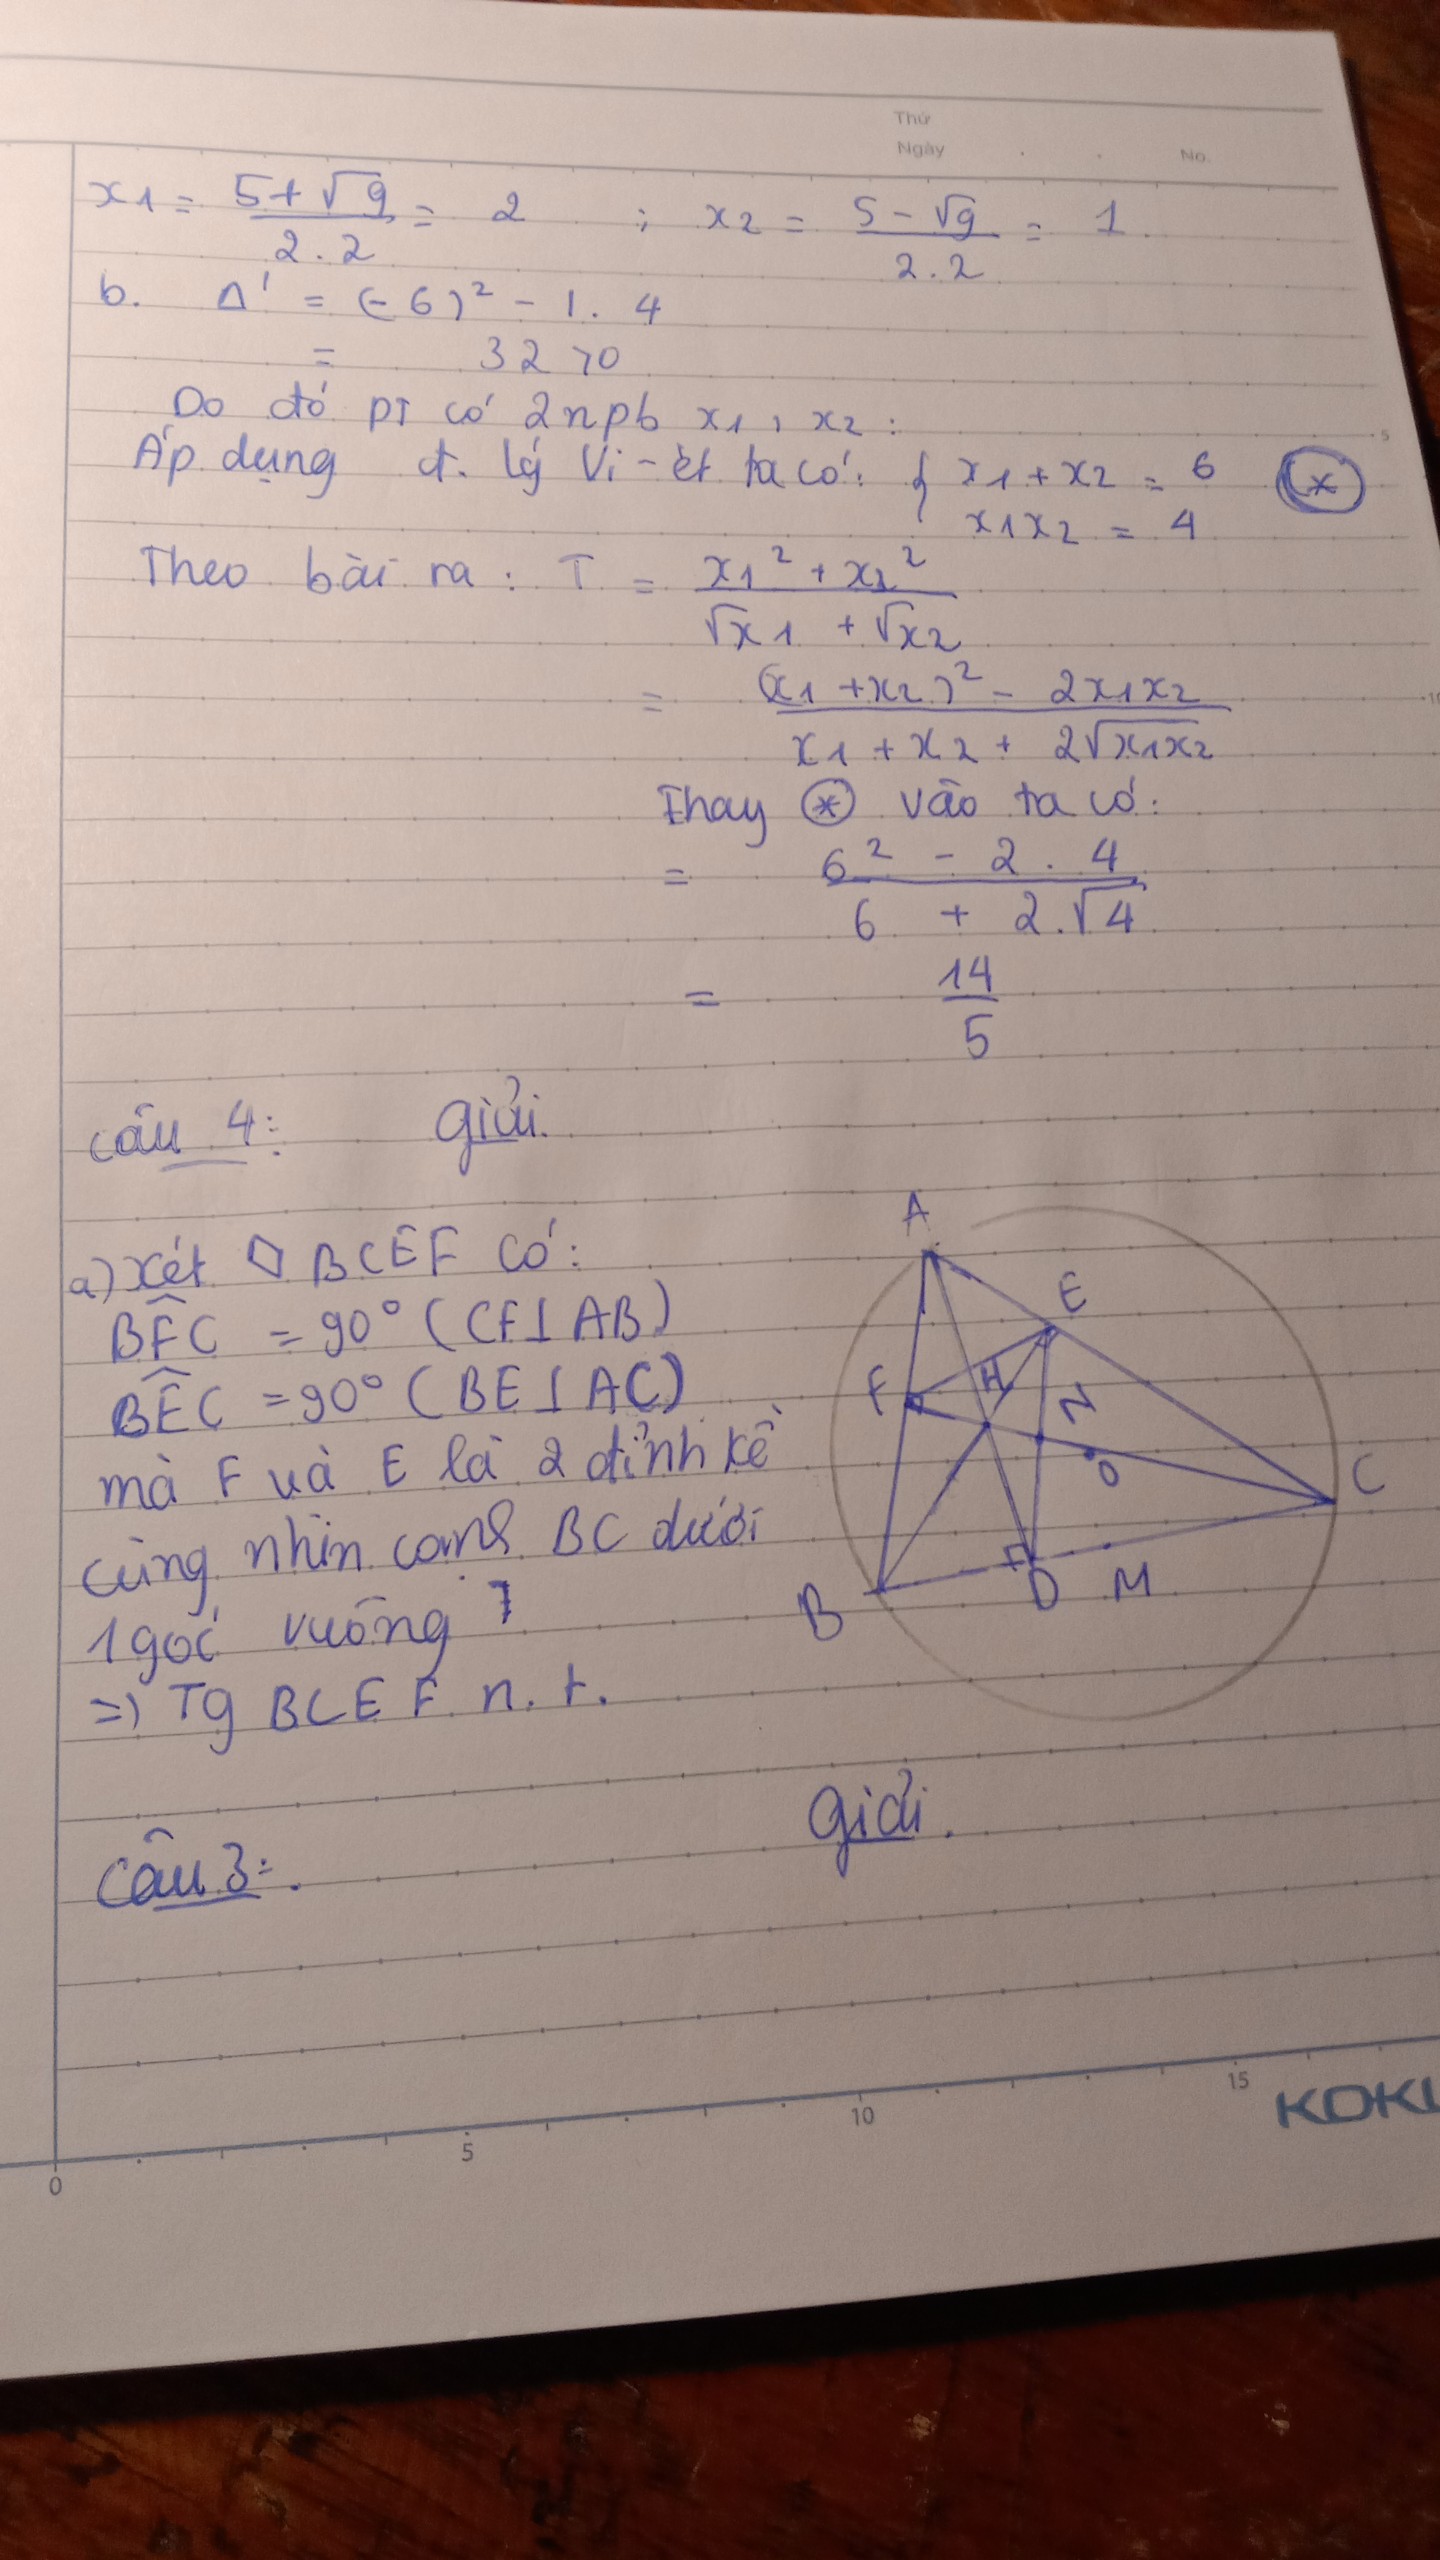 Thứ
Ngày No.
x1 = (5+√9)/(2.2) = 2 ; x2 = (5-√9)/(2.2) = 1
b. Δ' = (-6)² - 1. 4
= 32 >0
Do đó PT có 2npb x1, x2:
Áp dụng đ. lý Vi-ét ta có: { x1+x2 = 6 (*)
x1x2 = 4
Theo bài ra: T = (x1² + x2²)/(√x1 + √x2)
= ((x1+x2)² - 2x1x2)/(x1+x2+ 2√x1x2)
Thay (*) vào ta có:
= (6² - 2. 4)/(6 + 2.√4)
= 14/5
Câu 4: Giải.
a) Xét ▱ BCEF có:
BFC = 90° (CF⊥AB)
BEC = 90° (BE⊥AC)
mà F và E là 2 đỉnh kề
cùng nhìn cạnh BC dưới
1 góc vuông
=> Tg BCEF n.t.
A
E
F H N
O C
B D M
Giải.
Câu 3:
0 5 10 15
5
10
KOKU